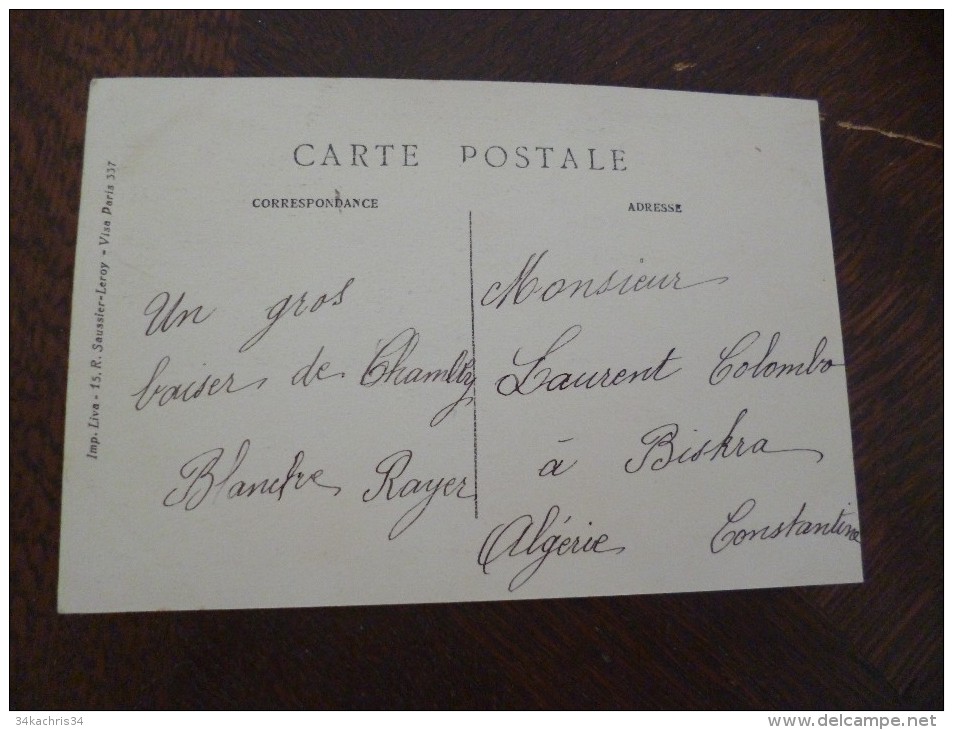 CARTE POSTALE
CORRESPONDANCE
ADRESSE
Imp. Liva - 15, R. Saussier-Leroy - Visa Paris 337
Un gros
baiser de Chambly
Blanche Rayer
Monsieur
Laurent Colombo
à Biskra
Algérie Constantine
34kachris34
www.delcampe.net